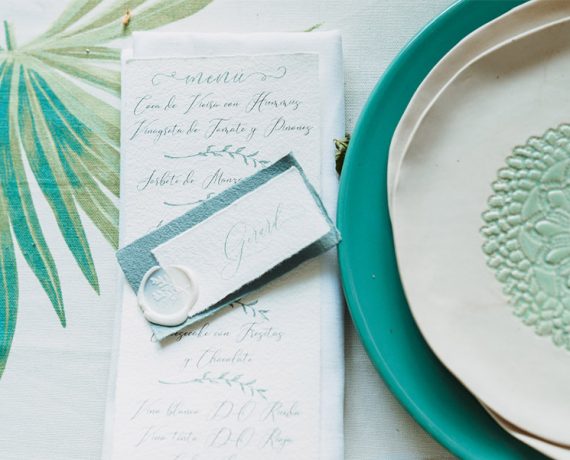 menú
Coca de Vieira con Hummus
Vinagreta de Tomate y Piñones
Sorbete de
Gerard
con Fresitas
y Chocolate
Vino blanco D·O Rueda
Vino tinto D·O Rioja